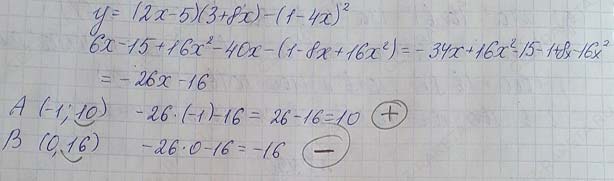 y = (2x-5)(3+8x)-(1-4x)²
6x-15+16x²-40x-(1-8x+16x²)=-34x+16x²-15-1+8x-16x²
=-26x-16
A (-1; 10) -26·(-1)-16=26-16=10 +
B (0, 16) -26·0-16=-16 -